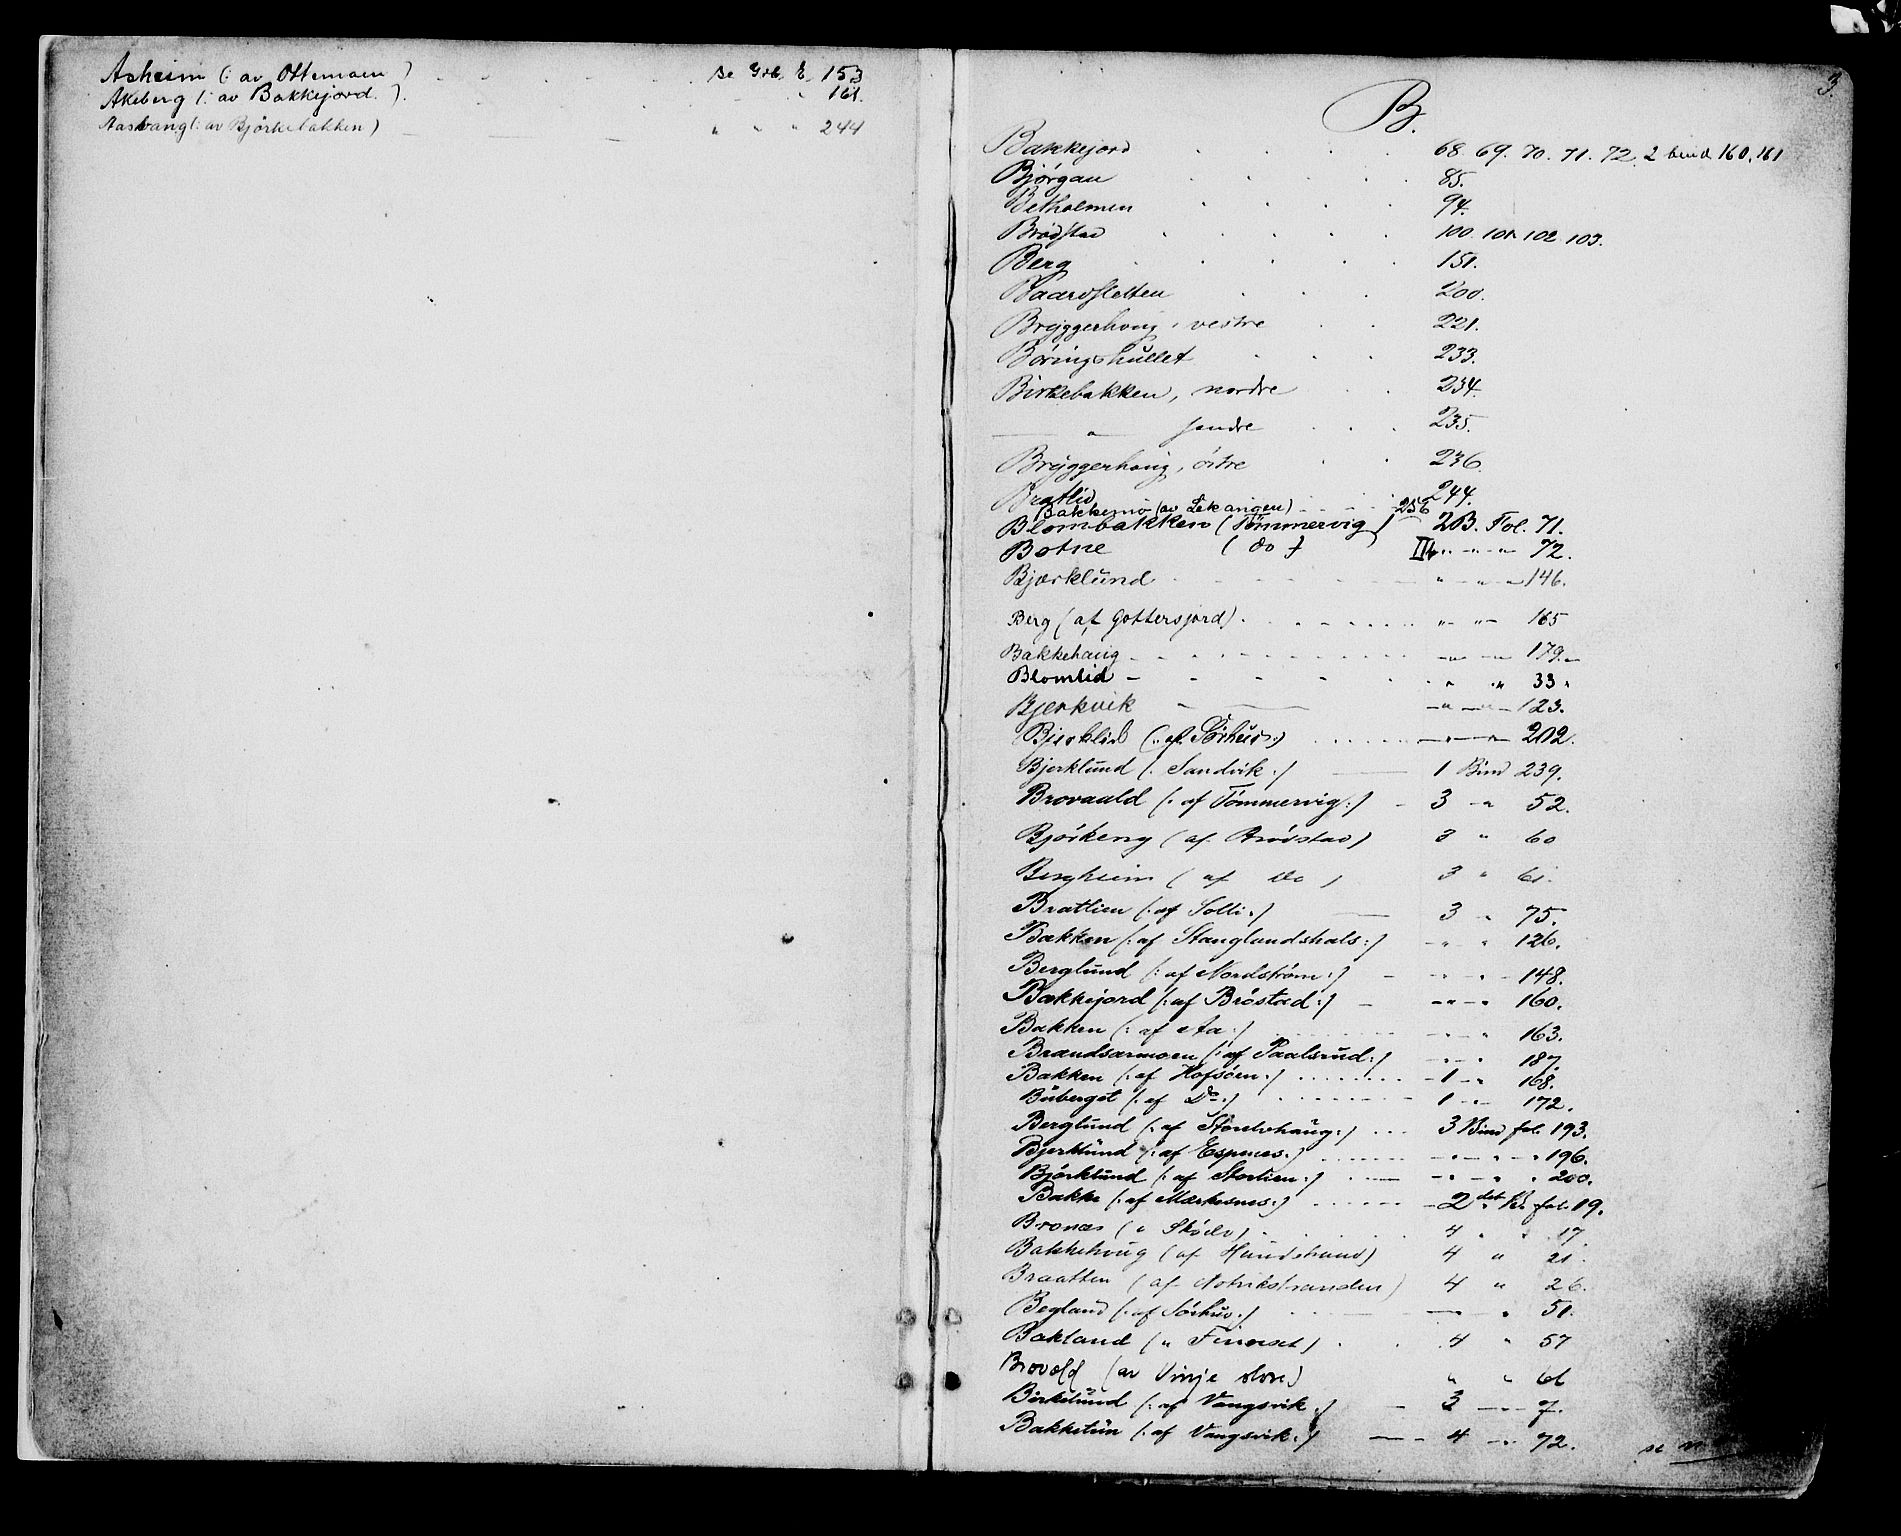 Asheim (: av Ottemoen ) se Grb. E. 153
Akeberg (: av Bakkejord. ). " 161.
Aasvang (: av Björkebakken) " " " 244
3.
B.
Bakkejord 68. 69. 70. 71. 72. 2 bind 160, 161
Bjørgan 85.
Betholmen 94.
Brødstad 100. 101. 102. 103.
Berg 151.
Baardsletten 200.
Bryggerhoug, vestre 221.
Børingshullet 233.
Birkebakken, nordre 234.
— " — søndre 235.
Bryggerhaug, östre 236.
Bratlid 244.
Bakkemo (av Lekangen) 256
Blombakken (Tömmervig) 2B. Fol. 71.
Botne ( do ) II " " 72.
Bjærklund " " 146.
Berg (af Gottersjord) " " 165
Bakkehaug " " 179.
Blomlid " " 33
Bjerkvik " " 123.
Bjerklid (: af Sörhus :) " " 202.
Bjerklund (: Sandvik :) 1 Bind 239.
Brovaald (: af Tömmervig :) 3 " 52.
Björkeng ( af Brödstad) 3 " 60
Bergheim ( af Do ) 3 " 61.
Bratlien (: af Solli :) 3 " 75.
Bakken (: af Stanglandshals :) " " 126.
Berglund (: af Nordström :) " " 148.
Bakkejord (: af Bröstad :) " " 160.
Bakken (: af Aa :) " " 163.
Brandsarmoen (: af Paalsrud :) " " 187.
Bakken (: af Hofsöen :) 1 " 168.
Buberget (: af Do :) 1 " 172.
Berglund (: af Storelvhaug :) 3 Bind fol. 193.
Bjerklund (: af Espenes :) " " " 196.
Björklund (: af Stortien :) " " " 200.
Bakke (: af Mærkesnes :) 2det B. fol. 19.
Bronæs ( " Sködv) 4 " " 17.
Bakkehoug ( af Hundstrand) 4 " 21.
Braatten ( af Notvikstranden) 4 " 26.
Begland (: af Sörhus :) " 51.
Bakland ( " Finnset) 4 " 57
Brovold (av Vinje store) " " 61
Birkelund (: af Vangsvik :) 3 " 7.
Bakketun (: af Vangsvik :) 4 " 72.
se